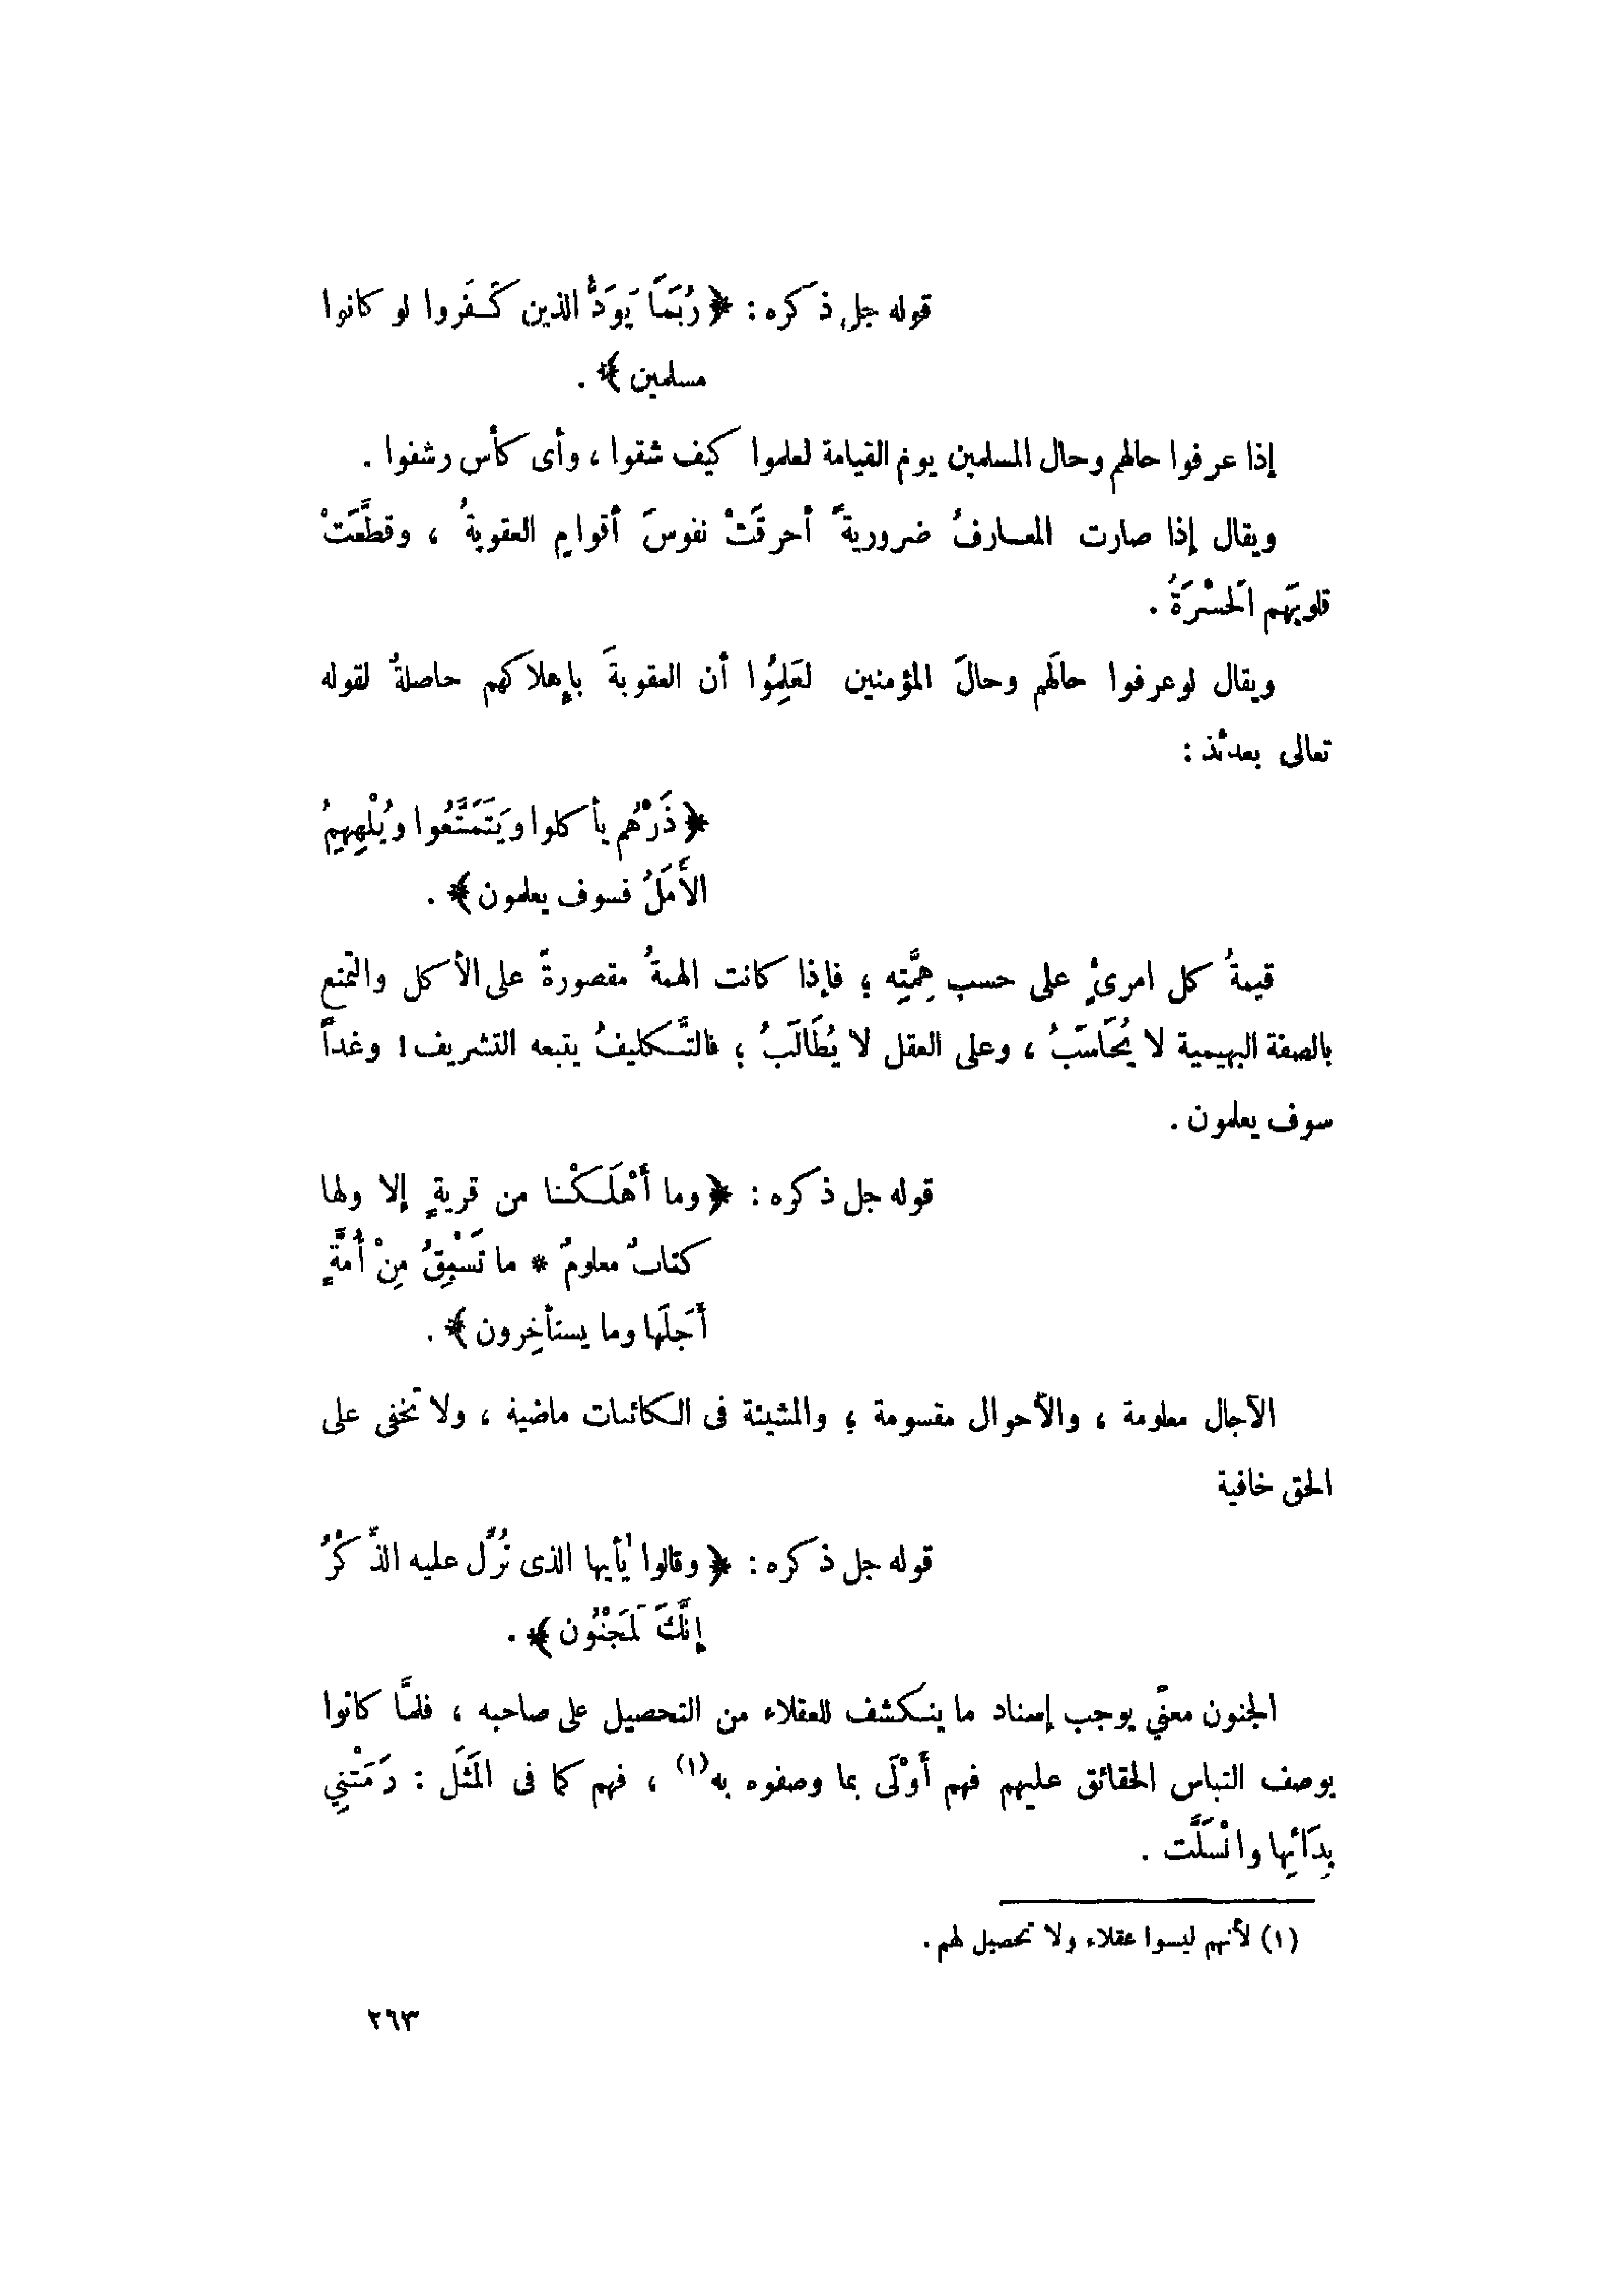 قوله جل ذكره : ﴿ رُبَمَا يَوَدُّ الذين كَفَروا لو كانوا
مسلمين ﴾ .
إذا عرفوا حالهم وحال المسلمين يوم القيامة لعلموا كيف شقوا ، وأى كأس رشفوا .
ويقال إذا صارت المعارفُ ضروريةً أحرقَتْ نفوسَ أقوامٍ العقوبةُ ، وقطَّعَتْ
قلوبَهم الحَسْرَةُ .
ويقال لو عرفوا حالَهم وحالَ المؤمنين لعَلِمُوا أن العقوبةَ بإهلاكهم حاصلةٌ لقوله
تعالى بعدئذ :
﴿ ذَرْهُم يأكلوا ويَتَمَتَّعُوا ويُلْهِهِمُ
الأَمَلُ فسوف يعلمون ﴾ .
قيمةُ كل امرئٍ على حسب هِمَّتِه ؛ فإذا كانت الهمةُ مقصورةً على الأكل والتمتع
بالصفة البهيمية لا يُحَاسَبُ ، وعلى العقل لا يُطَالَبُ ؛ فالتَّكليفُ يتبعه التشريف ! وغداً
سوف يعلمون .
قوله جل ذكره : ﴿ وما أَهْلَكْنا من قريةٍ إلا ولها
كتابٌ معلومٌ * ما تَسْبِقُ مِنْ أُمَّةٍ
أَجَلَها وما يستأخِرون ﴾ .
الآجال معلومة ، والأحوال مقسومة ؛ والمشيئة فى الكائنات ماضية ، ولا تَخفى على
الحق خافية
قوله جل ذكره : ﴿ وقالوا يٰأيها الذى نُزِّل عليه الذِّكْرُ
إنَّكَ لَمَجْنُون ﴾ .
الجنون معنًى يوجب إسناد ما ينكشف للعقلاء من التحصيل على صاحبه ، فلمَّا كانوا
بوصف التباس الحقائق عليهم فهم أَوْلَى بما وصفوه به(١) ، فهم كما فى المَثَل : رَمَتْنِي
بِدَائِها وانْسَلَّت .
(١) لأنهم ليسوا عقلاء ولا تحصيل لهم .
٢٦٣